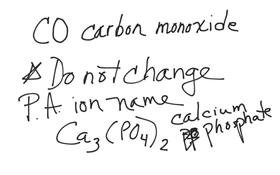 CO carbon monoxide
Do not change
P.A. ion name
Ca₃(PO₄)₂ calcium phosphate